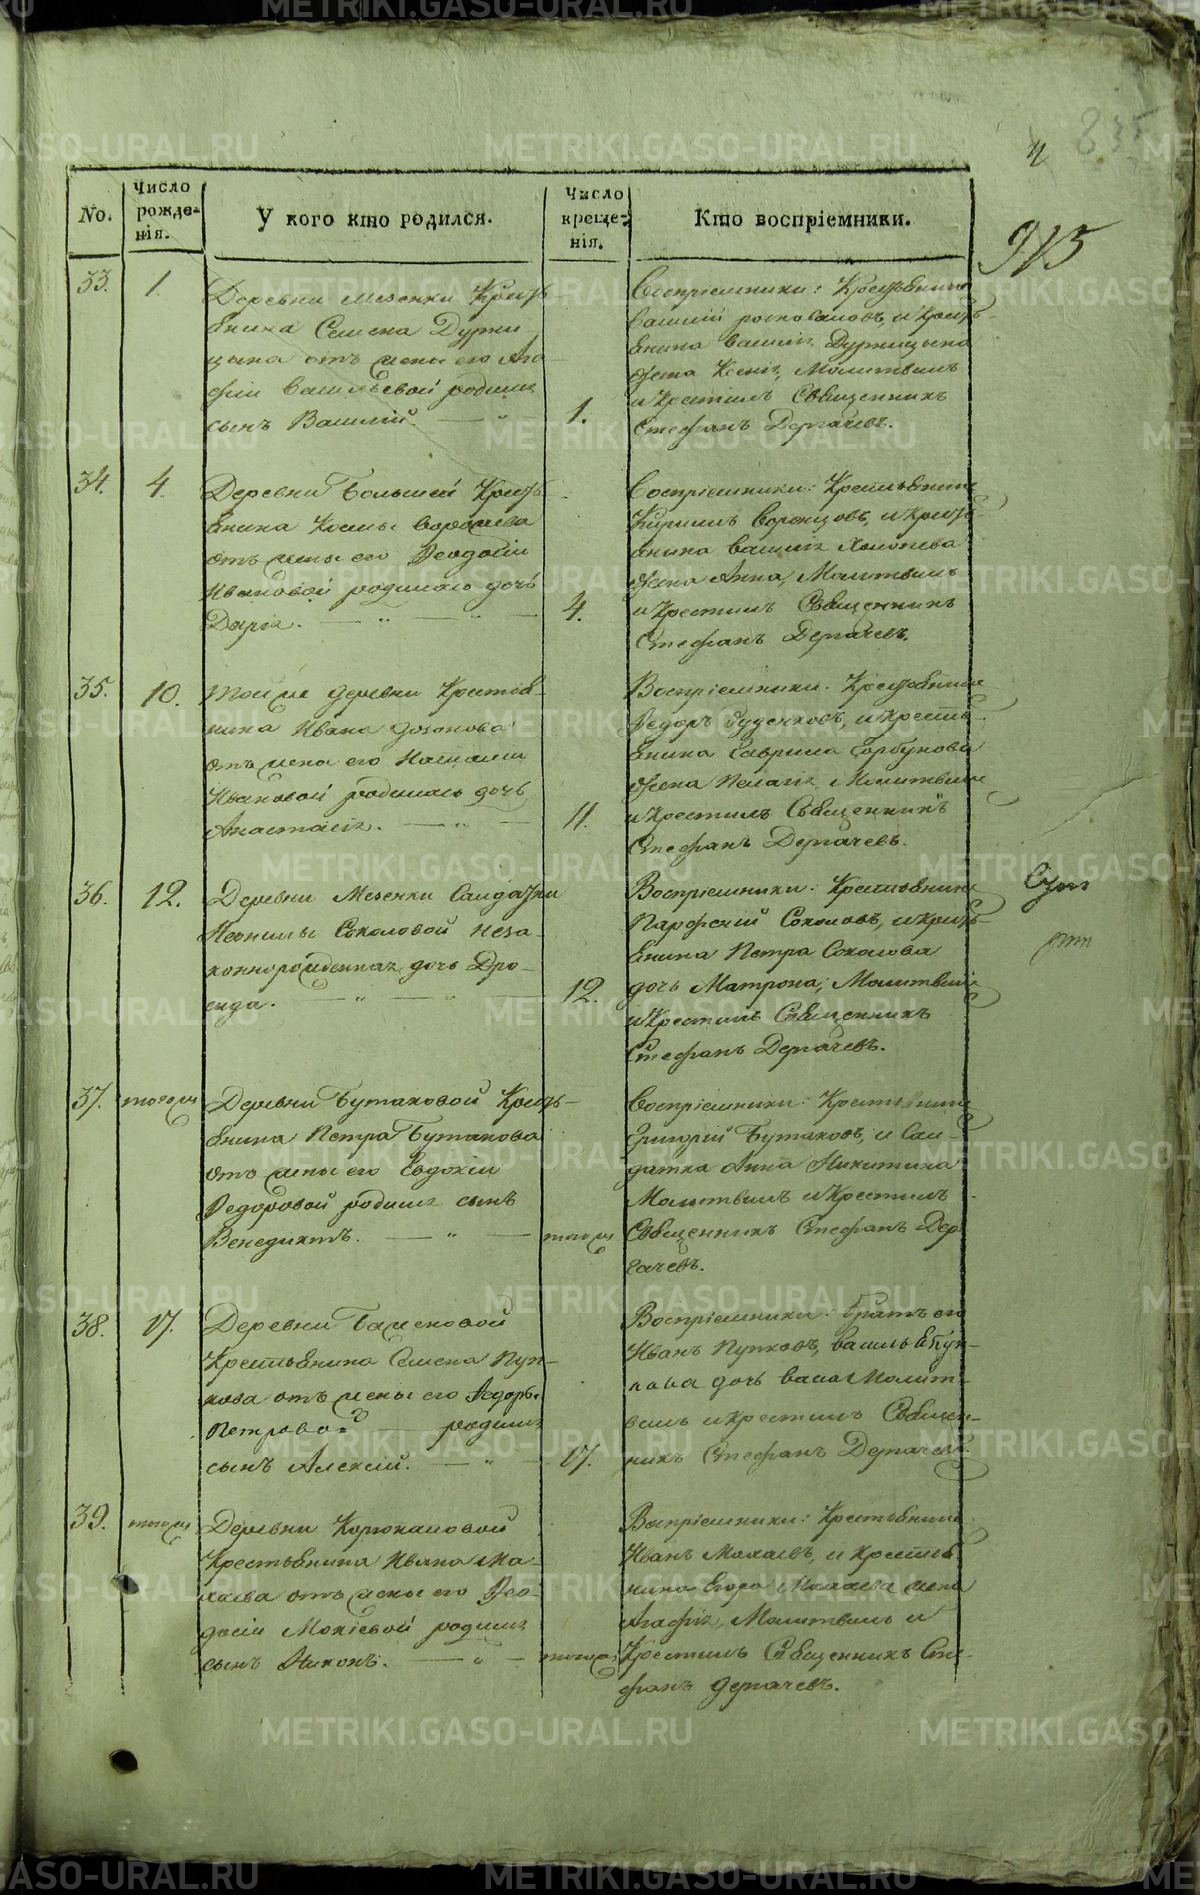 835
913
No.
Число рожденія.
У кого кто родился.
Число крещенія.
Кто воспріемники.
33.
1.
Деревни Мезенки Кресть-
янина Семена Дурни-
цына отъ жены его Ага-
фіи Васильевой родился
сынъ Василій.
1.
Воспріемники: Крестьянинъ
Василій и Кресть-
янина Василія Дурницына
жена Ксенія, Молитвилъ
и Крестилъ Священникъ
Стефанъ Дергачевъ.
34.
4.
Деревни Большей Кресть-
янина Космы
отъ жены его Ѳеодосіи
Ивановой родилась дочь
Дарья.
4.
Воспріемники: Крестьянинъ
Кирилъ Воронцовъ, и Кресть-
янина Василія
жена Анна, Молитвилъ
и Крестилъ Священникъ
Стефанъ Дергачевъ.
35.
10.
Той же деревни Крестья-
нина Ивана
отъ жены его Наталіи
Ивановой родилась дочь
Анастасія.
11.
Воспріемники: Крестьянинъ
Ѳедоръ и Кресть-
янина Гаврила Горбунова
жена Пелагія, Молитвилъ
и Крестилъ Священникъ
Стефанъ Дергачевъ.
36.
12.
Деревни Мезенки Салдатки
Неонилы Соколовой неза-
коннорожденная дочь Дро-
сида.
12.
Воспріемники: Крестьянинъ
Парфеній Соколовъ, и Кресть-
янина Петра Соколова
дочь Матрона, Молитвилъ
и Крестилъ Священникъ
Стефанъ Дергачевъ.
37.
того жъ
Деревни Бутаковой Кресть-
янина Петра Бутакова
отъ жены его Евдокіи
Ѳедоровой родился сынъ
Венедиктъ.
того жъ
Воспріемники: Крестьянинъ
Григорій Бутаковъ, и Сал-
датка Анна Никитина
Молитвилъ и Крестилъ
Священникъ Стефанъ Дер-
гачевъ.
38.
17.
Деревни Баженовой
Крестьянина Семена Пуп-
кова отъ жены его Ѳедоры
Петровой родился
сынъ Алексій.
17.
Воспріемники: братъ его
Иванъ Пупковъ, Василья Пуп-
кова дочь Васса Молит-
вилъ и Крестилъ Священ-
никъ Стефанъ Дергачевъ.
39.
того жъ
Деревни Корюкаловой
Крестьянина Ивана Ма-
каева отъ жены его Ѳео-
досіи Мокіевой родился
сынъ Никонъ.
того жъ
Воспріемники: Крестьянинъ
Иванъ Макаевъ, и Крестья-
нина Егора Макаева жена
Агафія, Молитвилъ и
Крестилъ Священникъ Сте-
фанъ Дергачевъ.
METRIKI.GASO-URAL.RU